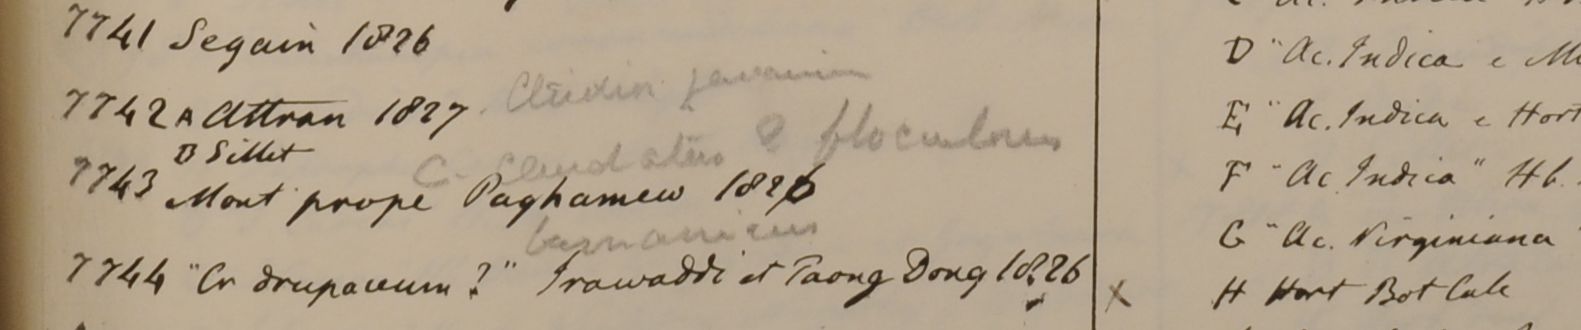 7741 Segain 1826
7742 A Attran 1827
B Sillet
C. caudatus & floculosus
7743 Mont prope Paghamew 1826
birmanicus
7744 "Cr drupaceum?" Irawaddi et Taong Dong 1826
D "Ac. Indica e
E "Ac. Indica e Hort
F "Ac Indica" Hb.
G "Ac. Virginiana
X H Hort Bot Calc